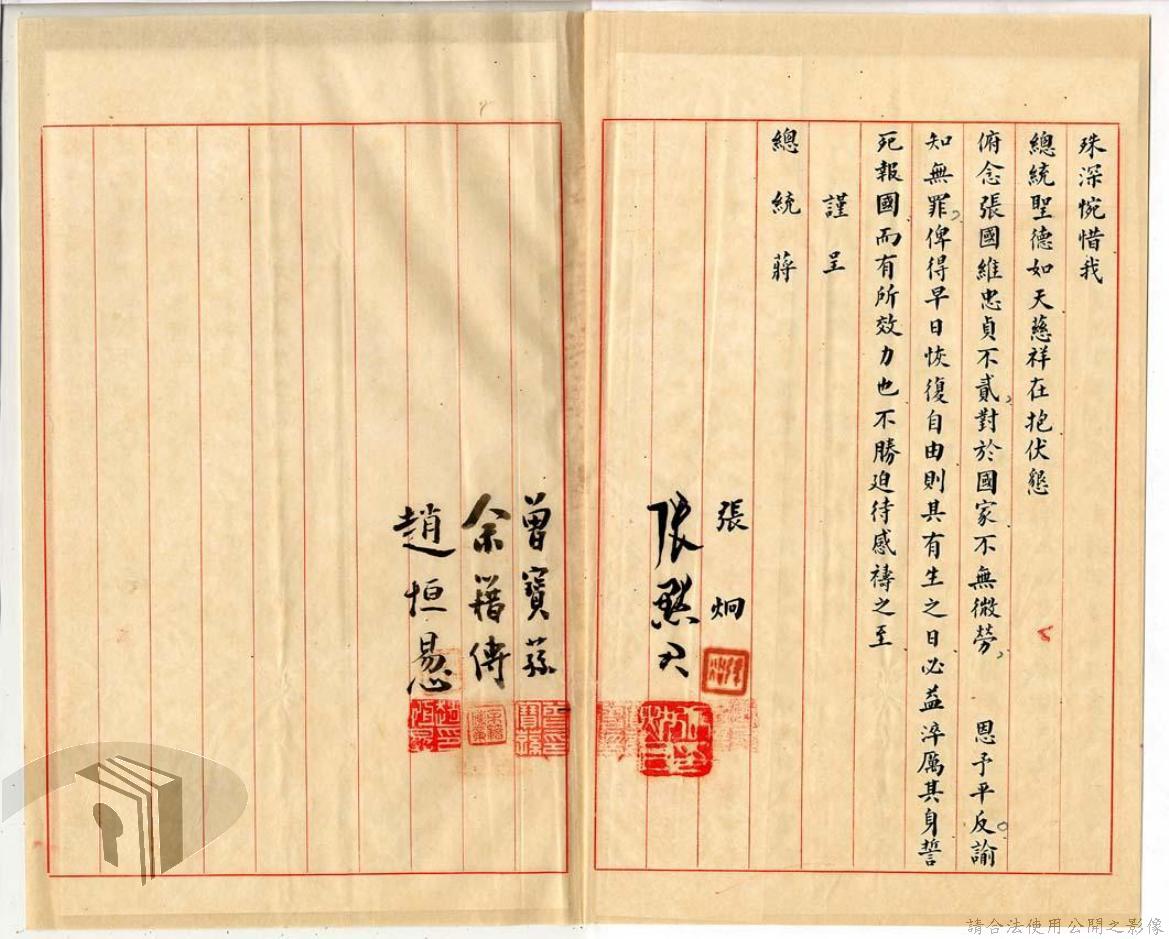 珠深惋惜我
總統聖德如天慈祥在抱伏懇
俯念張國維忠貞不貳對於國家不無微勞，　恩予平反諭
知無罪，俾得早日恢復自由則其有生之日必益淬厲其身誓
死報國而有所效力也不勝迫待感禱之至
謹呈
總統蔣
張炯
張默君
曾寶蓀
余籍傳
趙恒惖
請合法使用公開之影像